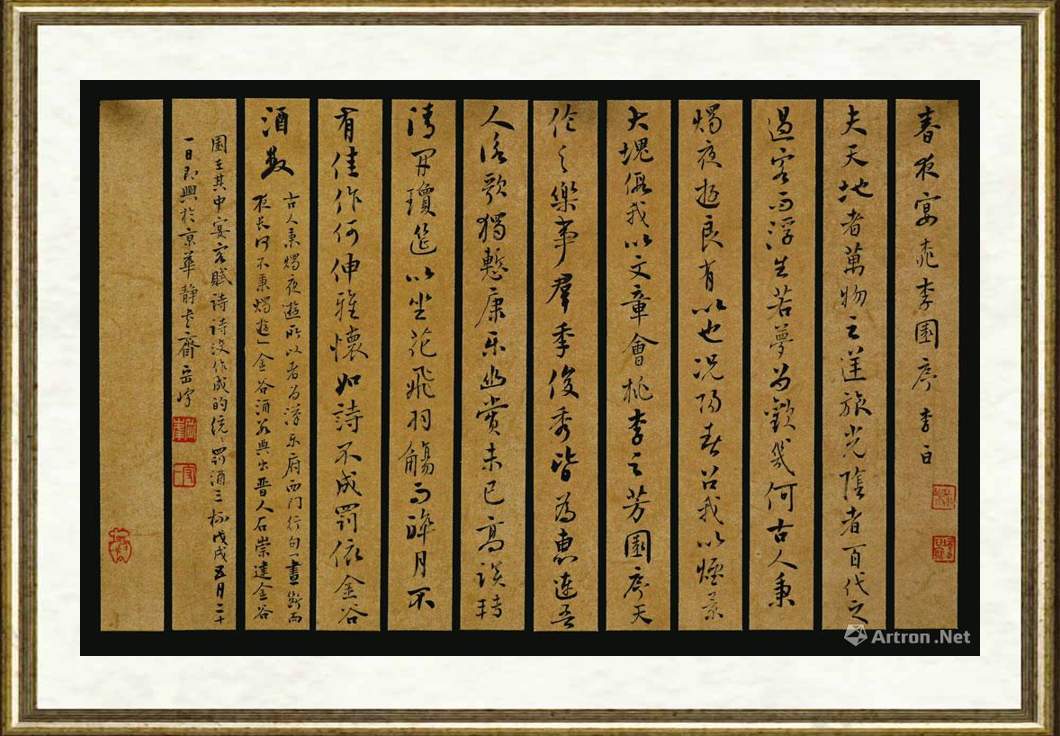 春夜宴桃李園序 李白
夫天地者萬物之逆旅光陰者百代之
過客而浮生若夢為歡幾何古人秉
燭夜遊良有以也況陽春召我以煙景
大塊假我以文章會桃李之芳園序天
倫之樂事群季俊秀皆為惠連吾
人詠歌獨慙康樂幽賞未已高談轉
清開瓊筵以坐花飛羽觴而醉月不
有佳作何伸雅懷如詩不成罰依金谷
酒數
古人秉燭夜遊所以者为漢乐府西門行句「晝短而
夜长何不秉燭遊」金谷酒數典出晉人石崇建金谷
園在其中宴客賦诗诗没作成的统统罰酒三杯戊戌五月二十
一日即興於京華靜	齋岳峰
Artron.Net